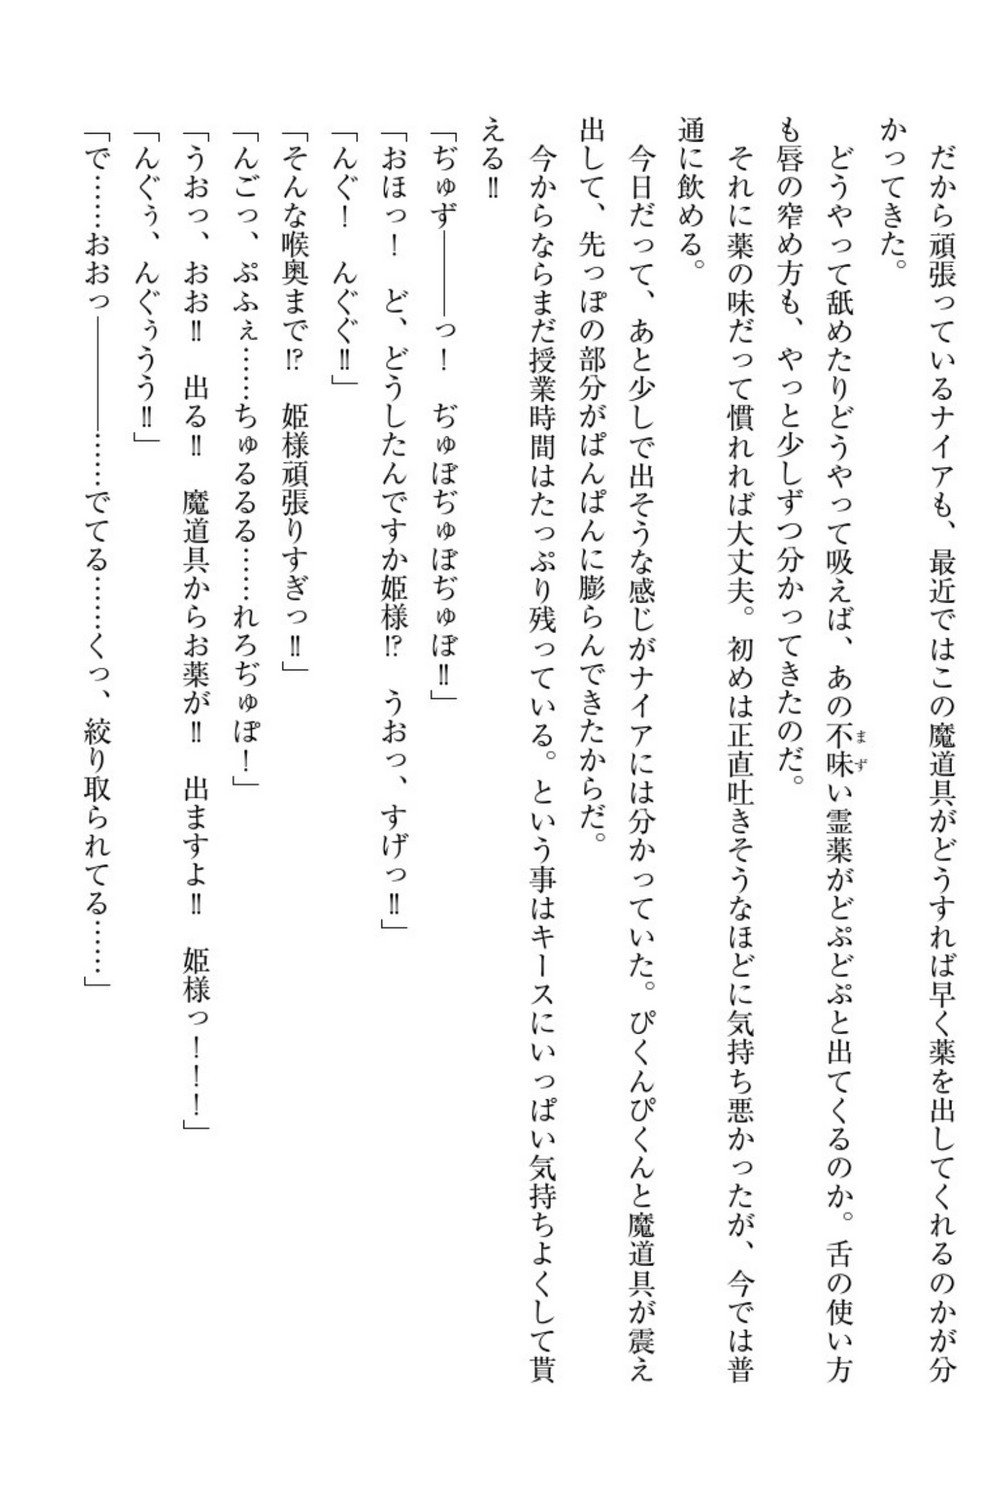 だから頑張っているナイアも、最近ではこの魔道具がどうすれば早く薬を出してくれるのかが分
かってきた。
どうやって舐めたりどうやって吸えば、あの不味い霊薬がどぷどぷと出てくるのか。舌の使い方
も唇の窄め方も、やっと少しずつ分かってきたのだ。
それに薬の味だって慣れれば大丈夫。初めは正直吐きそうなほどに気持ち悪かったが、今では普
通に飲める。
今日だって、あと少しで出そうな感じがナイアには分かっていた。ぴくんぴくんと魔道具が震え
出して、先っぽの部分がぱんぱんに膨らんできたからだ。
今からならまだ授業時間はたっぷり残っている。という事はキースにいっぱい気持ちよくして貰
える‼
「ぢゅず――――っ！　ぢゅぼぢゅぼぢゅぼ‼」
「おほっ！　ど、どうしたんですか姫様⁉　うおっ、すげっ‼」
「んぐ！　んぐぐ‼」
「そんな喉奥まで⁉　姫様頑張りすぎっ‼」
「んごっ、ぷふぇ……ちゅるるる……れろぢゅぽ！」
「うおっ、おお‼　出る‼　魔道具からお薬が‼　出ますよ‼　姫様っ！！！」
「んぐぅ、んぐぅうう‼」
「で……おおっ――――……でてる……くっ、絞り取られてる……」